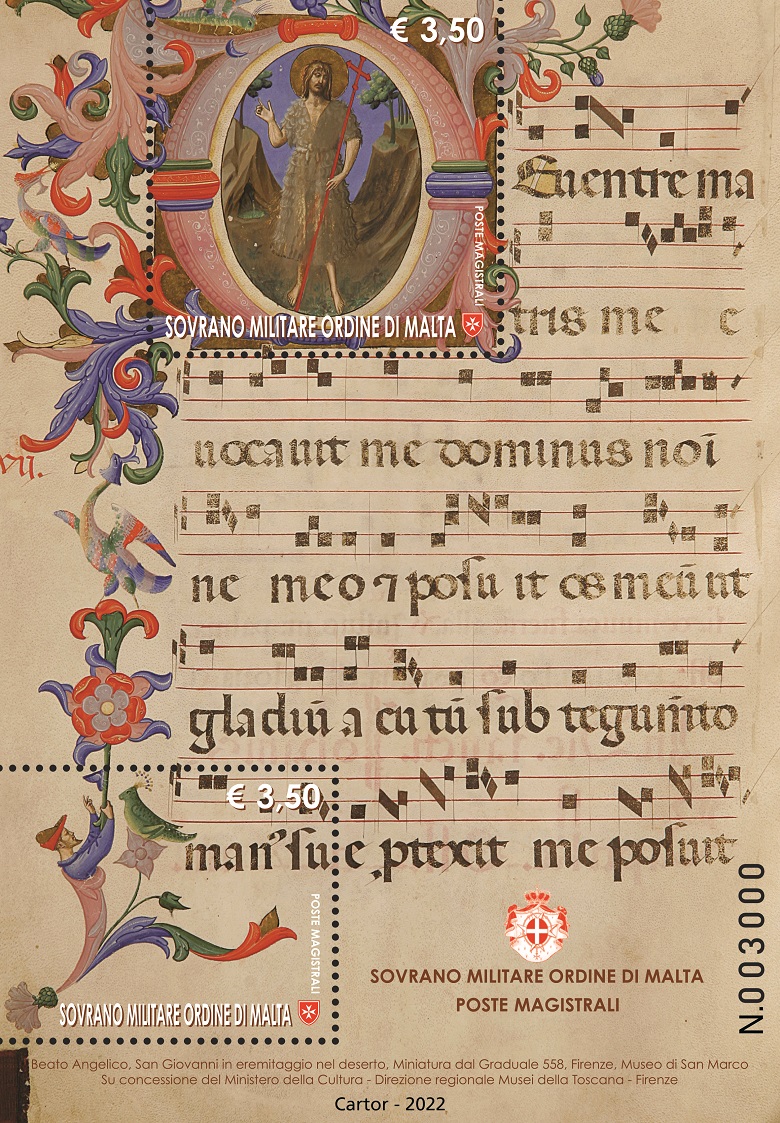 € 3,50
Euentre ma
POSTE MAGISTRALI
SOVRANO MILITARE ORDINE DI MALTA
tris me e
uocauit me dominus noi
vii.
ne meo ⁊ posu it os meũ ut
gladiũ a cu tũ sub tegum̃to
€ 3,50
man' su e ptexit me posuit
POSTE MAGISTRALI
SOVRANO MILITARE ORDINE DI MALTA
SOVRANO MILITARE ORDINE DI MALTA
POSTE MAGISTRALI
N.003000
Beato Angelico, San Giovanni in eremitaggio nel deserto, Miniatura dal Graduale 558, Firenze, Museo di San Marco
Su concessione del Ministero della Cultura - Direzione regionale Musei della Toscana - Firenze
Cartor - 2022